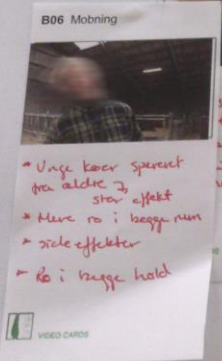 B06 Mobning
* Unge køer spereret
fra ældre
stor effekt
* Mere ro i begge rum
* side effekter
* Ro i begge hold
VIDEO CARDS